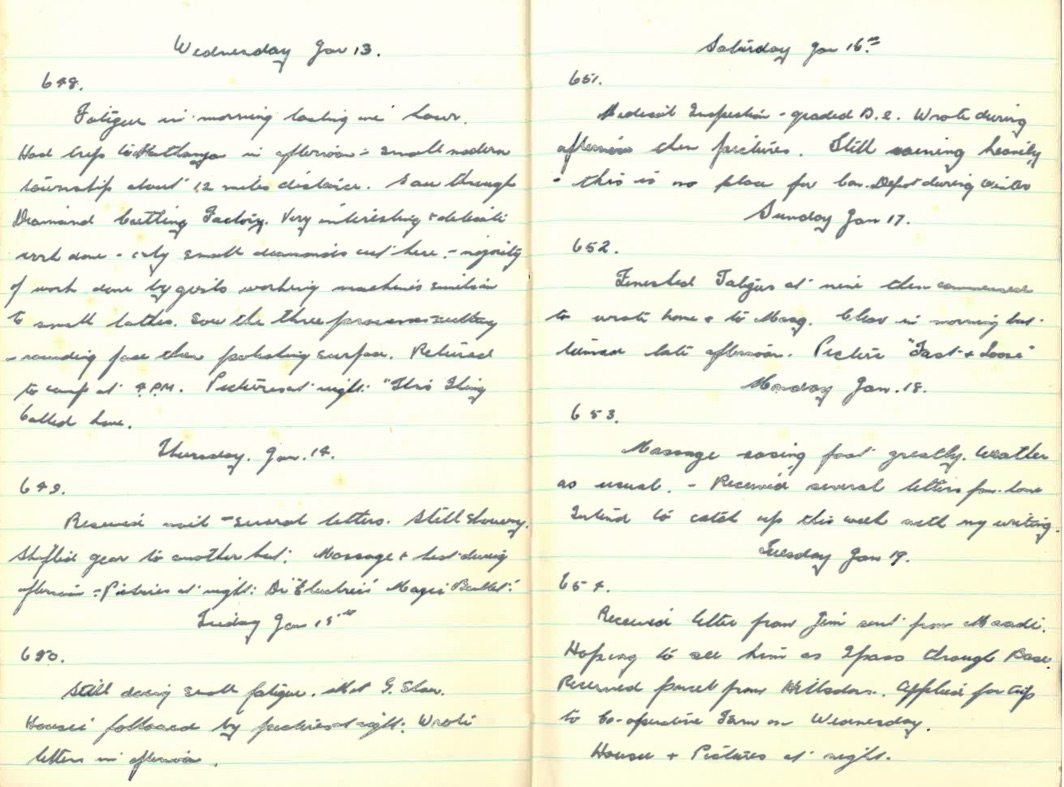 Wednesday Jan 13.
648.
Fatigue in morning lasting one hour.
Had trip to Nathanya in afternoon - small modern
township about 12 miles distance. Saw through
Diamond Cutting Factory. Very interesting & delicate
work done - only small diamonds cut here. - majority
of work done by girls working machines similar
to small lathes. Saw the three processes - cutting
- rounding face then polishing surface. Returned
to camp at 4 P.M. Pictures at night. "This Thing
Called Love.
Thursday. Jan. 14.
649.
Received mail - several letters. Still showery.
Shifted gear to another hut. Massage & heat during
afternoon - Pictures at night: Dr Magic Bullet."
Friday Jan 15th
650.
Still doing small fatigue. Met G. Shaw.
Housie followed by pictures at night. Wrote
letters in afternoon.
Saturday Jan 16th
651.
Medical Inspection - graded D.2. Wrote during
afternoon then pictures. Still raining heavily
- this is no place for Con. Depot during winter
Sunday Jan 17.
652.
Finished Fatigue at nine then commenced
to wrote home & to Marg. Clear in morning but
turned late afternoon. Picture "Fast & Loose"
Monday Jan. 18.
653.
Massage easing foot greatly. Weather
as usual. - Received several letters from home
Intend to catch up this week with my writing.
Tuesday Jan 19.
654.
Received letter from Jim sent from Maadi.
Hoping to see him as I pass through Base.
Received parcel from. Applied for trip
to Co-operative Farm on Wednesday.
Housie & Pictures at night.